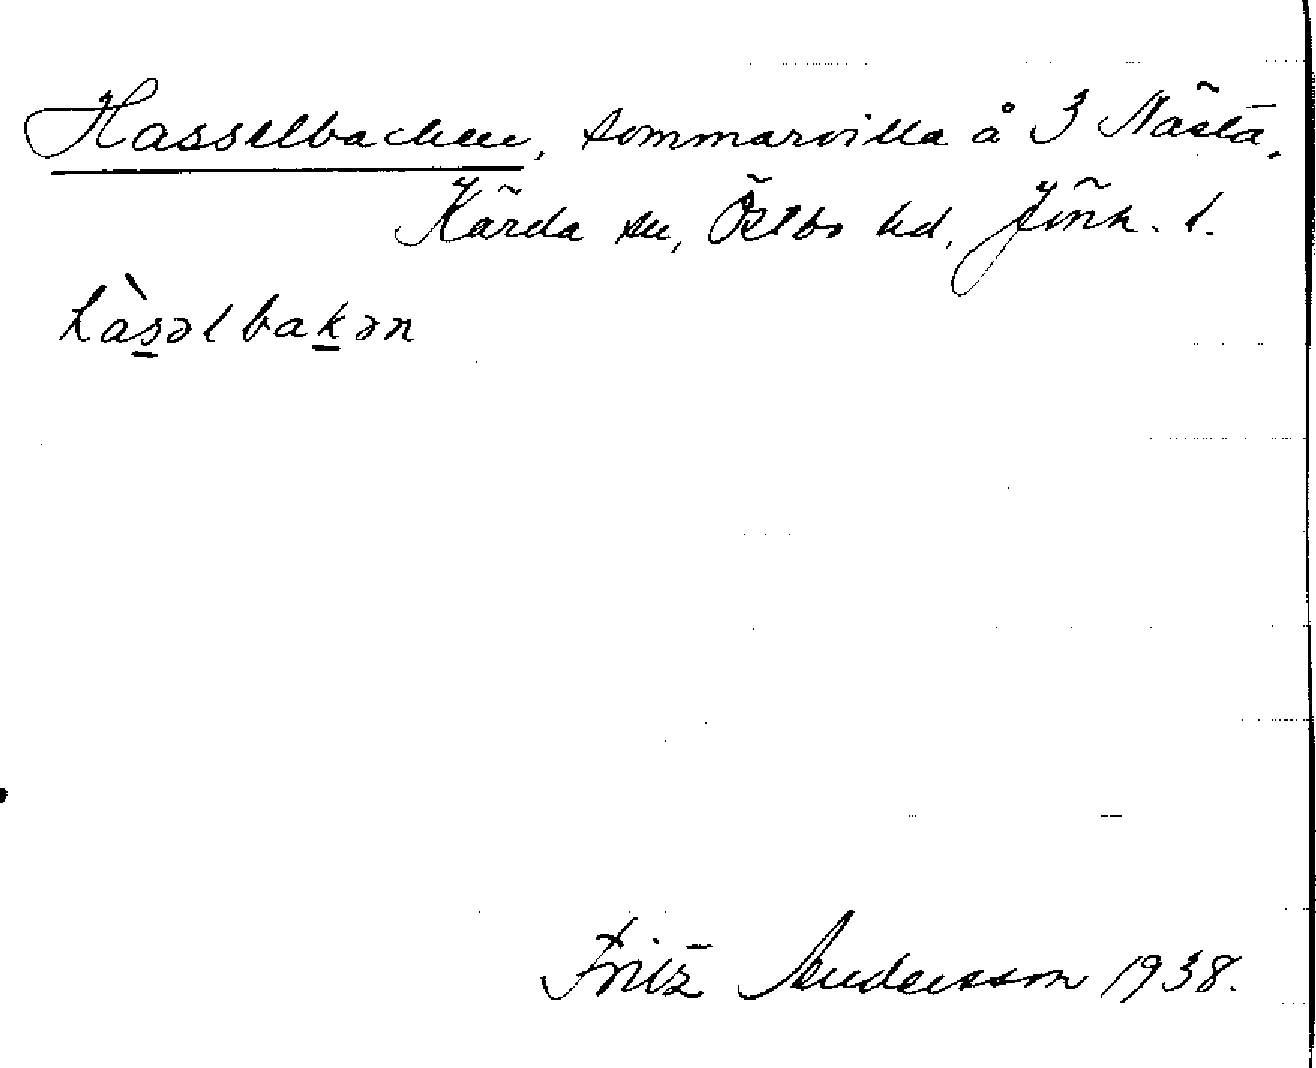 Hasselbacken, sommarvilla å 3 Nästa,
Kärda sn, Östbo hd, Jönk. l.
hàs̲əlbak̲ən
Fritz Andersson 1938.